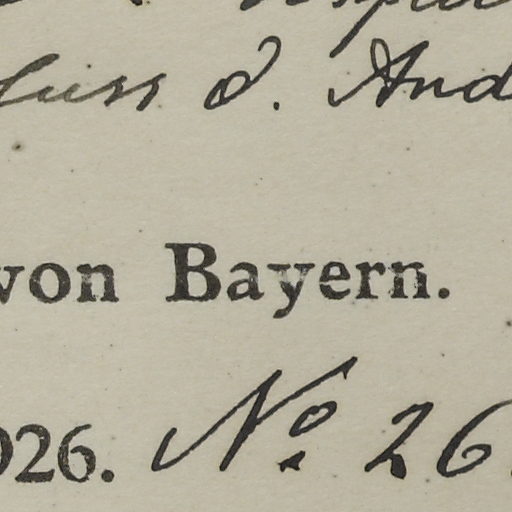 d. And
von Bayern.
026. No. 26